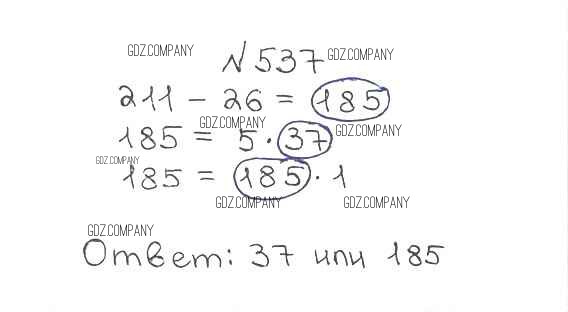 GDZ.COMPANY
№537 GDZ.COMPANY
211 - 26 = 185
GDZ.COMPANY
185 = 5 · 37 GDZ.COMPANY
GDZ.COMPANY
185 = 185 · 1
GDZ.COMPANY GDZ.COMPANY
GDZ.COMPANY
Ответ: 37 или 185